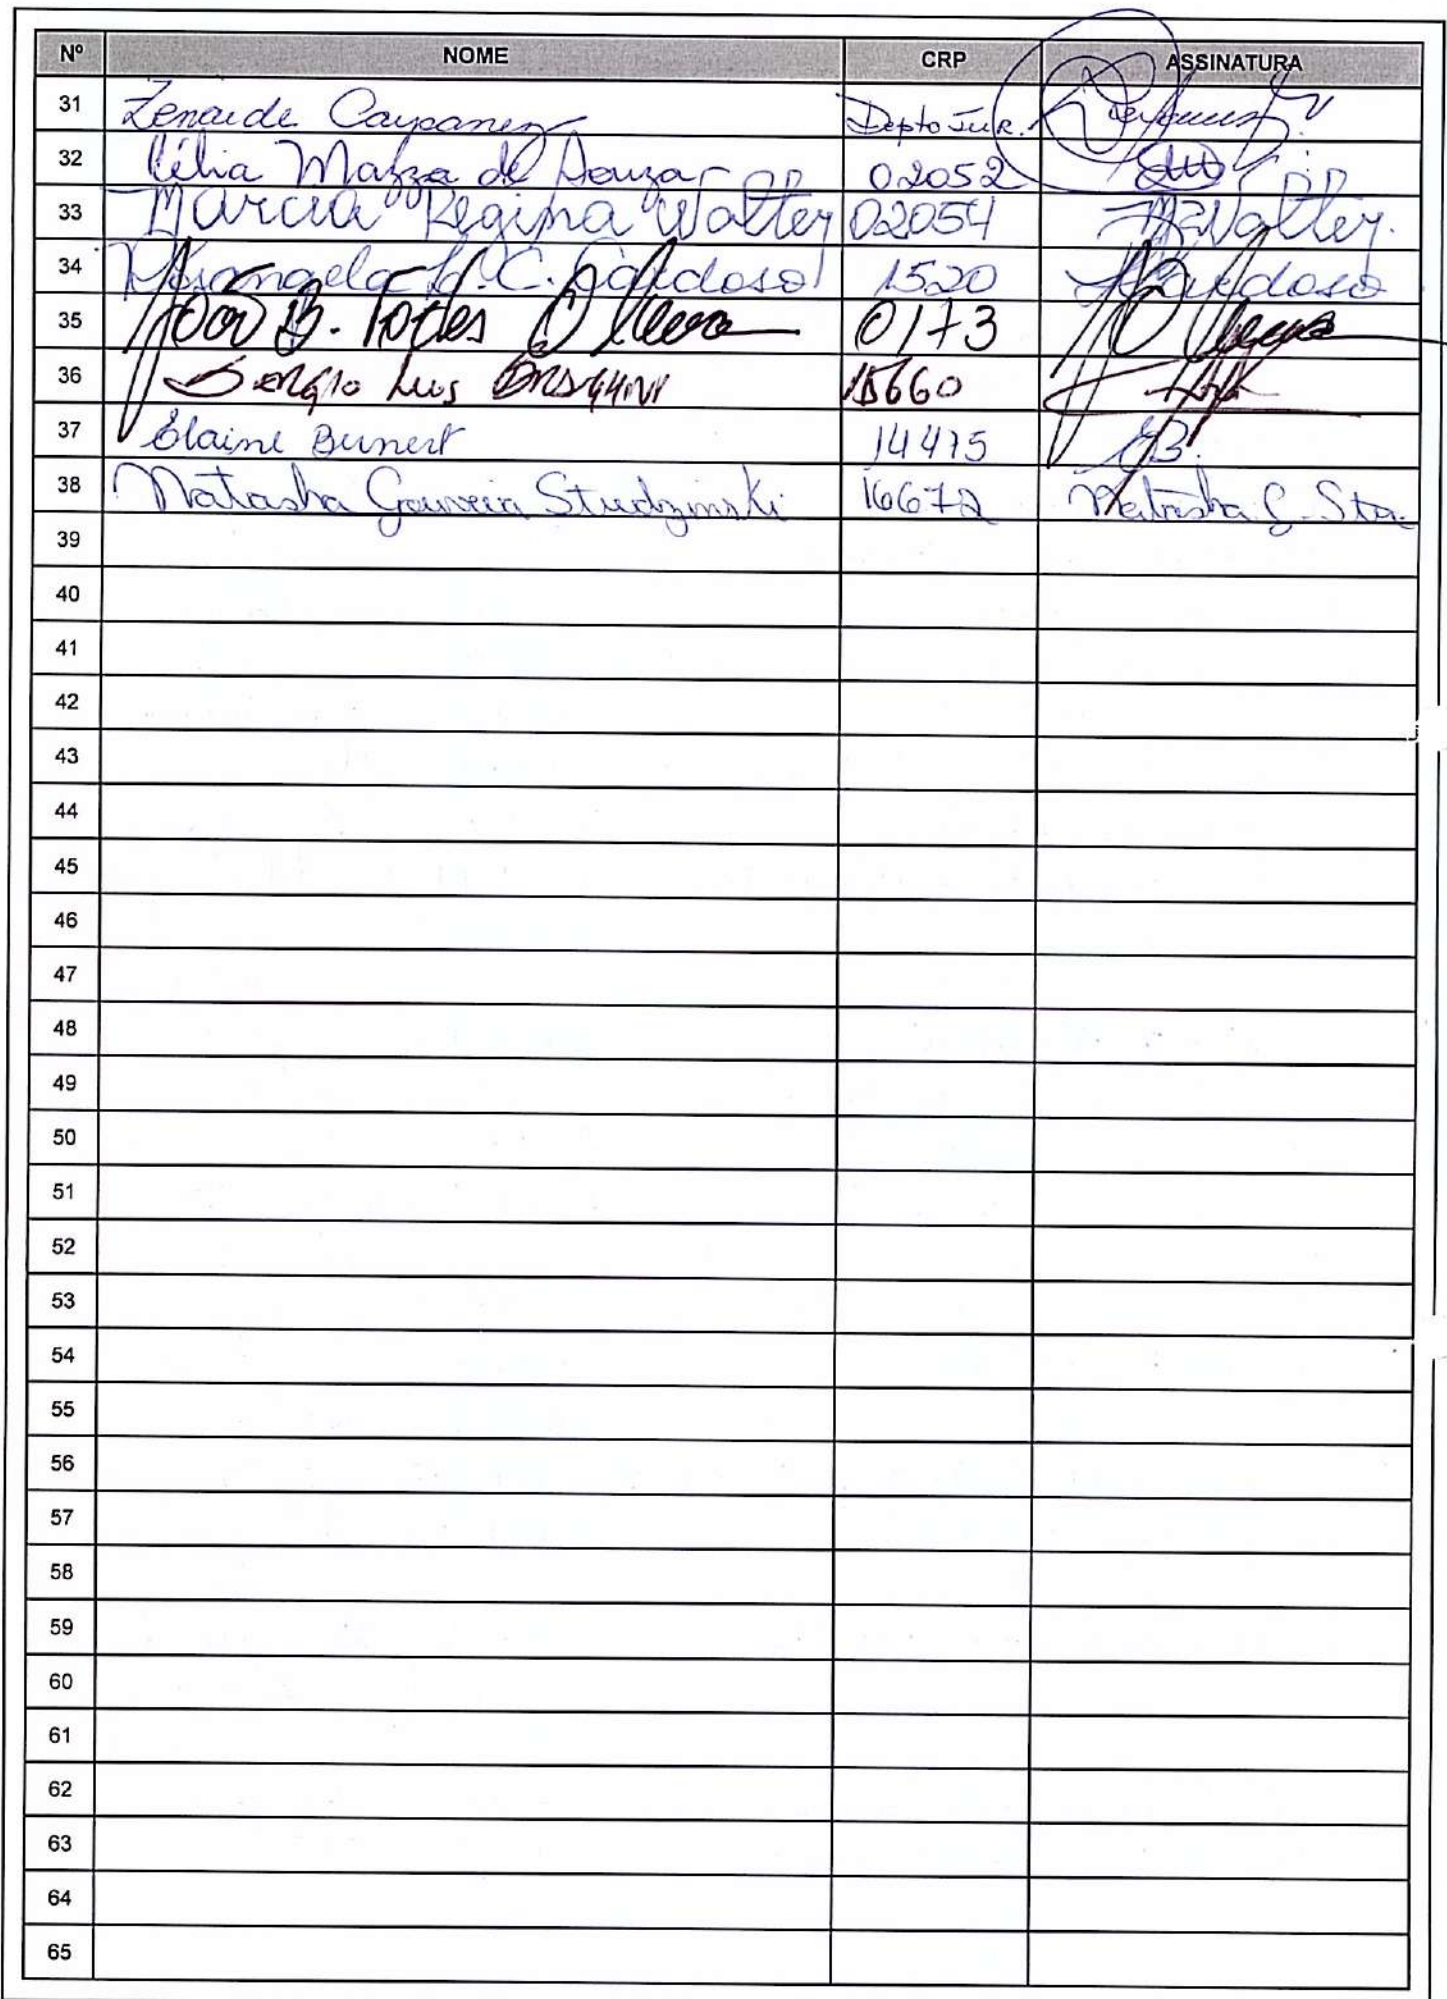 Nº NOME CRP ASSINATURA
31 Zenaide Depto Jur.
32 Célia Mazza de Souza 02052
33 Marcia Regina Walter 02054 MRWalter.
34 Rosangela C. Cardoso 1520 Cardoso
35 João B. Fortes Oliveira 0173
36 Sergio Luis 15660
37 Elaine Bunert 14475 EB.
38 Natasha Gouveia Studzinski 16672 Natasha G. Stu.
39
40
41
42
43
44
45
46
47
48
49
50
51
52
53
54
55
56
57
58
59
60
61
62
63
64
65